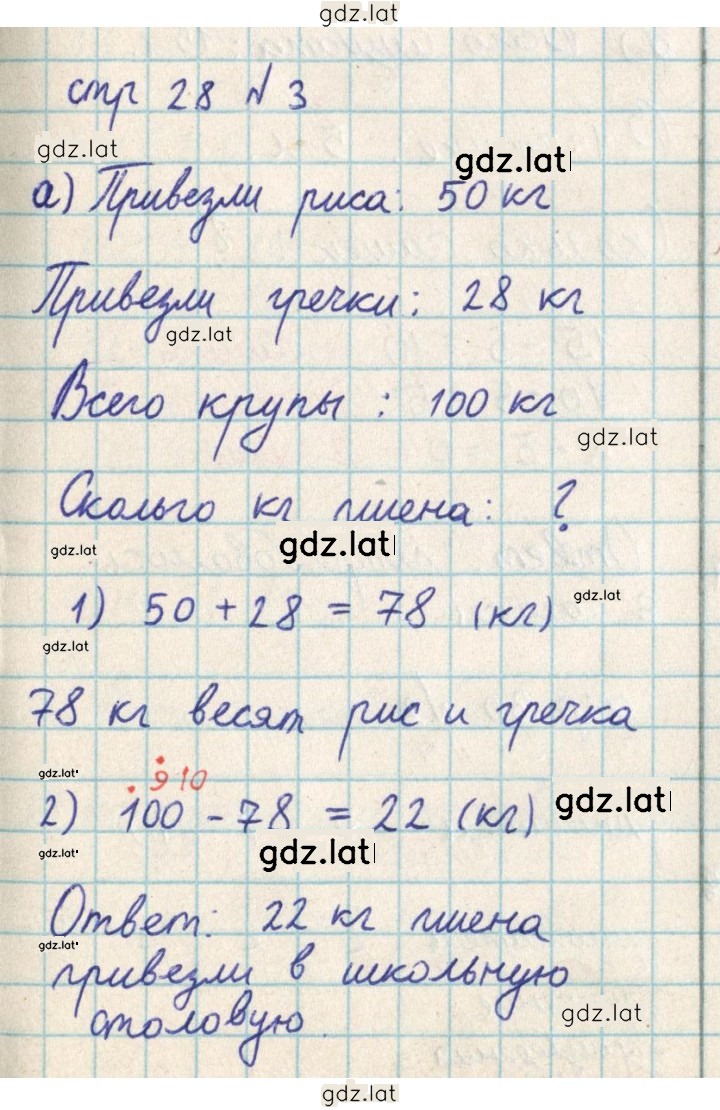 gdz.lat
стр 28 № 3
gdz.lat
gdz.lat
а) Привезли риса: 50 кг
Привезли гречки: 28 кг
gdz.lat
Всего крупы : 100 кг
gdz.lat
Сколько кг пшена: ?
gdz.lat
gdz.lat
1) 50 + 28 = 78 (кг)
gdz.lat
gdz.lat
78 кг весят рис и гречка
gdz.lat
9 10
gdz.lat
2) 100 - 78 = 22 (кг)
gdz.lat
gdz.lat
Ответ: 22 кг пшена
gdz.lat
привезли в школьную
столовую.
gdz.lat
gdz.lat